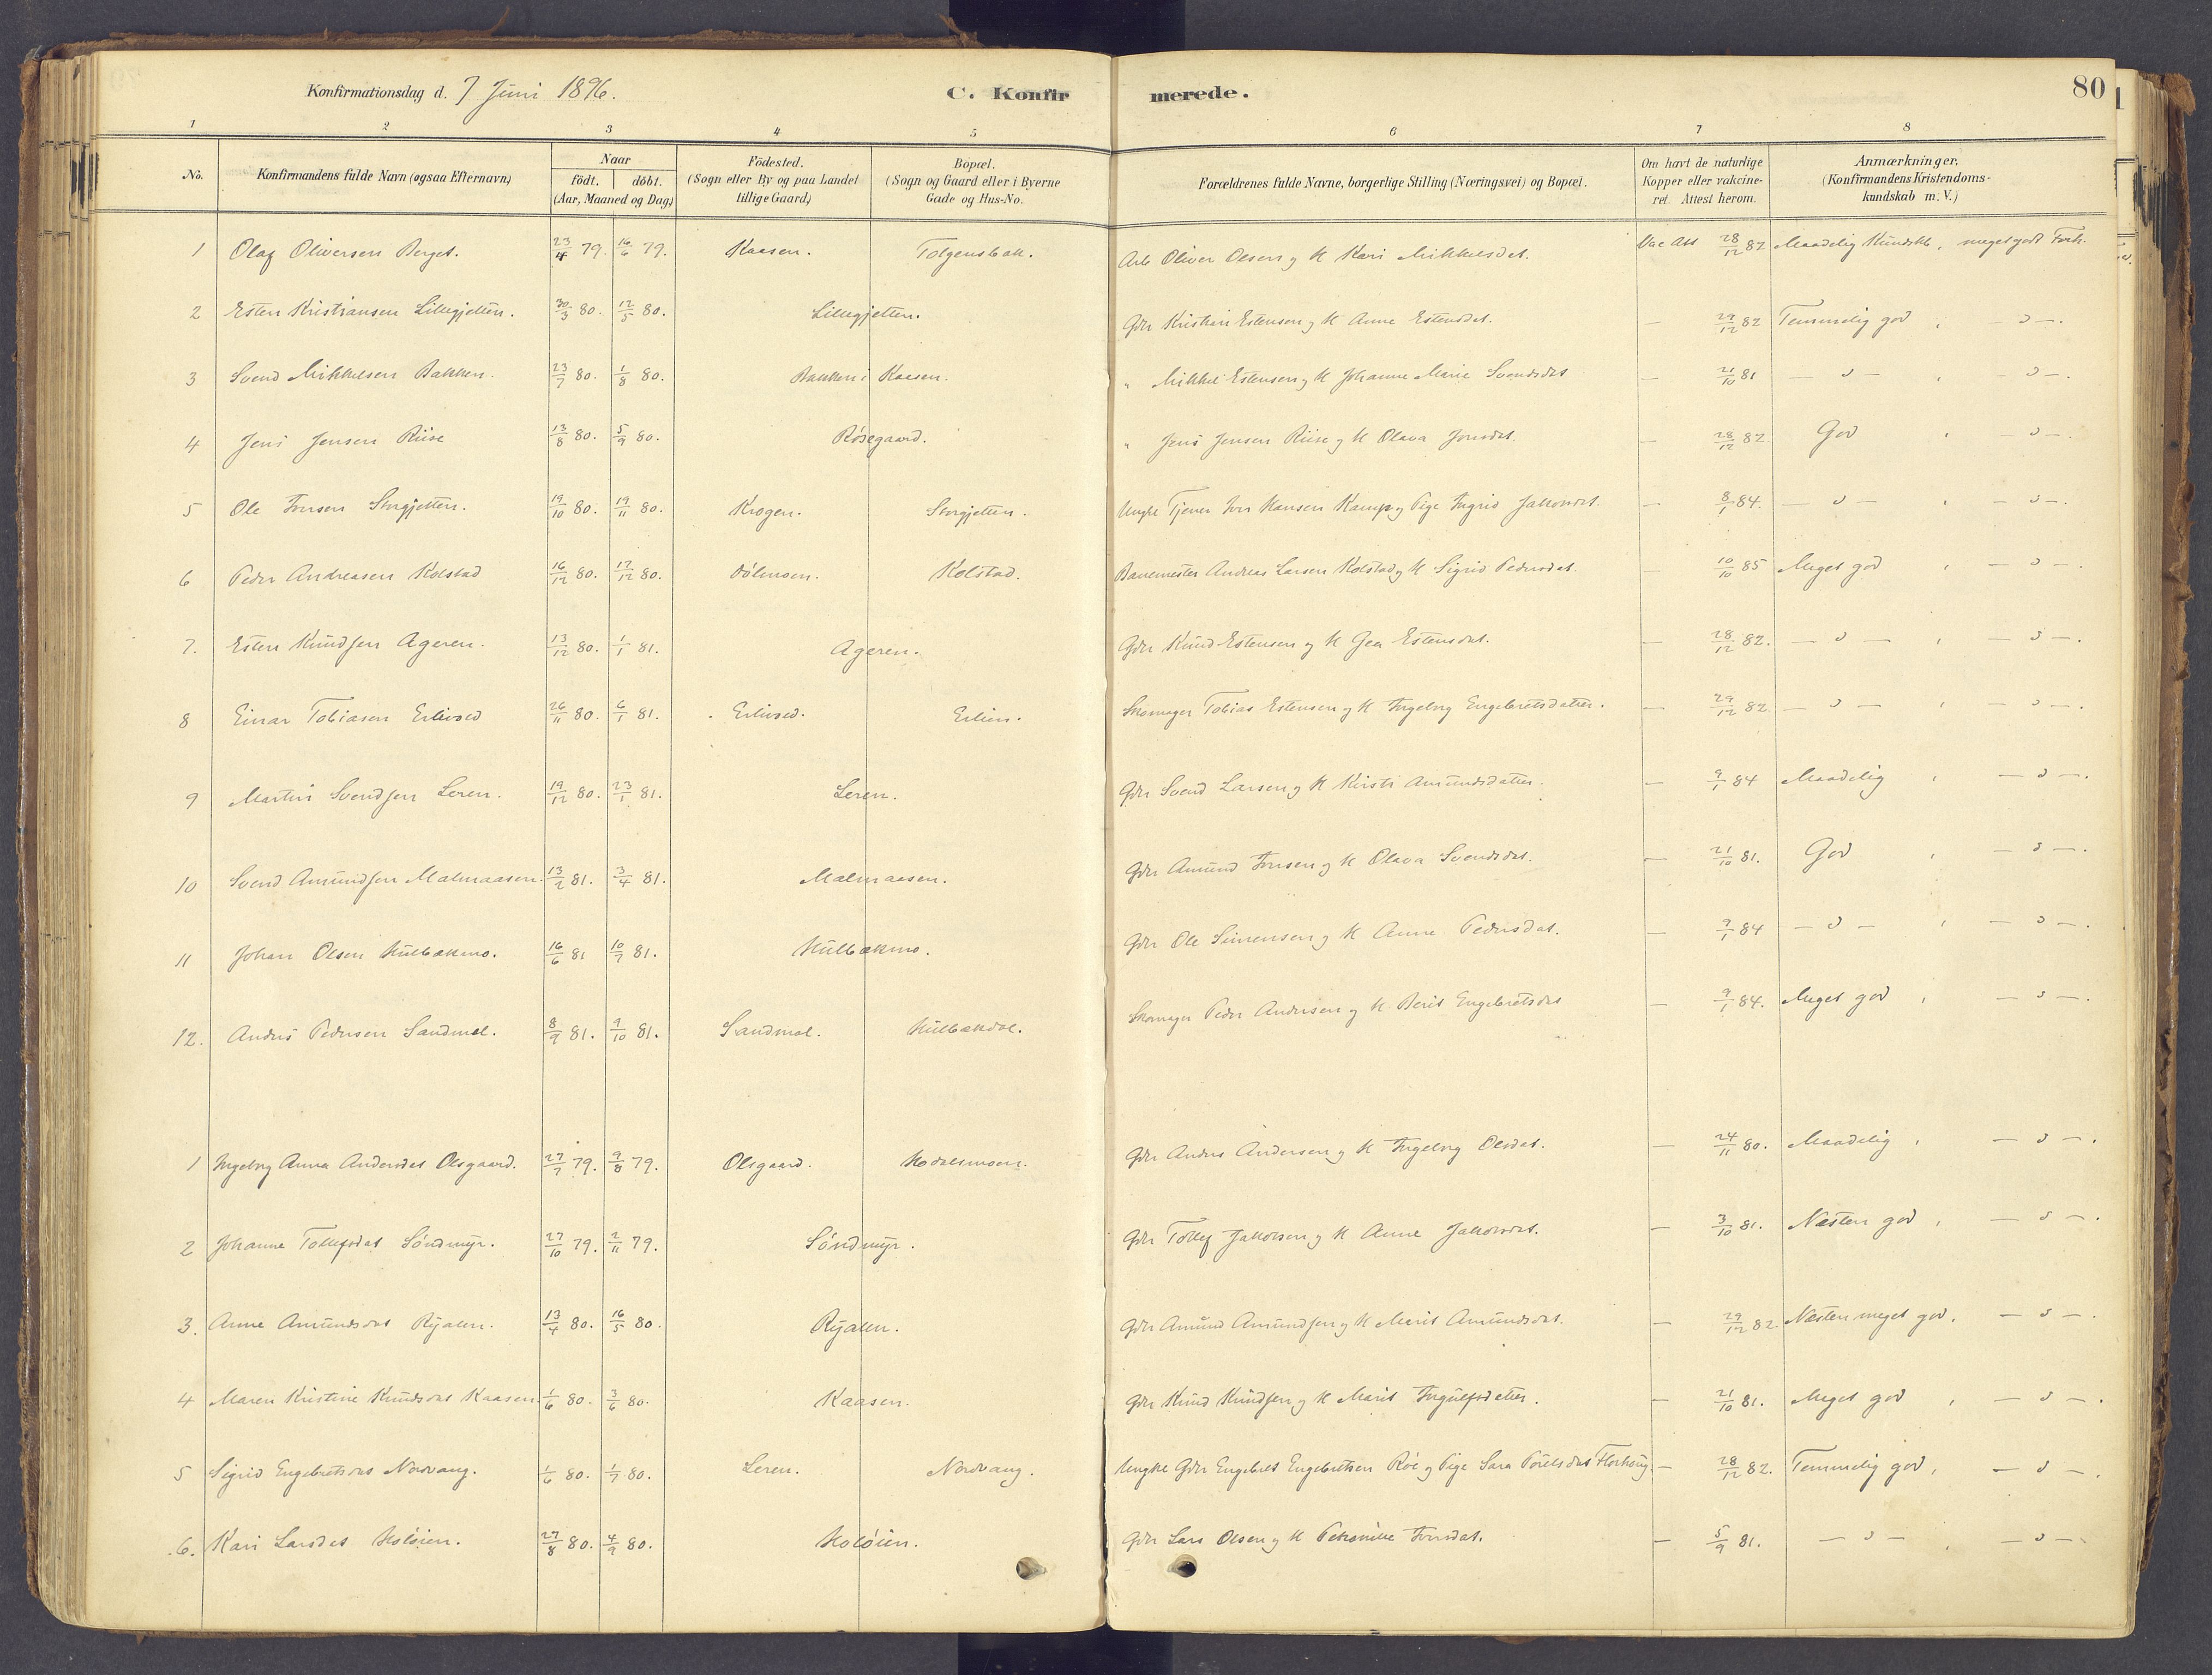 Konfirmationsdag d. 7 Juni 1896. C. Konfirmerede. 80
1 2 3 4 5 6 7 8
No. Konfirmandens fulde Navn (ogsaa Efternavn) Naar födt. döbt. (Aar, Maaned og Dag) Födested. (Sogn eller By og paa Landet tillige Gaard) Bopæl. (Sogn og Gaard eller i Byerne Gade og Hus-No. Forældrenes fulde Navne, borgerlige Stilling (Næringsvei) og Bopæl. Om havt de naturlige Kopper eller vakcineret. Attest herom. Anmærkninger. (Konfirmandens Kristendomskundskab m. V.)
1 Olaf Oliversen Berget. 23/4 79. 16/6 79. Kaasen. Tolgensbak. Arb Oliver Olsen og H Kari Mikkelsdat. Vac Att 28/12 82 Maadelig Kundskb, meget godt Forh.
2 Esten Kristiansen Lillegjelten. 30/3 80. 12/5 80. Lillegjelten. Gdr Kristian Estensen og H Anne Estensdat. — 29/12 82 Temmelig god, — " —.
3 Svend Mikkelsen Bakken. 23/7 80. 1/8 80. Bakken i Kaasen. " Mikkel Estensen og H Johanne Marie Svendsdat — 21/10 81 — " —, — " —.
4 Jens Jensen Riise 13/8 80. 5/9 80. Rösegaard. " Jens Jensen Riise og H Olava Jonsdat. — 28/12 82 God, — " —.
5 Ole Iversen Storgjelten. 19/10 80. 19/11 80. Krogen. Storgjelten. Ungke Tjener Iver Hansen Kamp og Pige Ingrid Jakobsdt. — 8/1 84. — " —, — " —.
6 Peder Andreasen Kolstad 16/12 80. 17/12 80. Kolstad. Banemester Andreas Larsen Kolstad og H Sigrid Pedersdat. — 10/10 85 Meget god, — " —.
7. Esten Knudsen Ageren. 13/12 80. 1/1 81. Ageren. Gdr Knud Estensen og H Gea Estensdat. — 28/12 82. — " —, — " —.
8 Einar Tobiasen Erlivod 26/11 80. 6/1 81. Erlivod. Erlien. Skomager Tobias Estensen og H Ingeborg Engebretsdatter. — 29/12 82. — " —, — " —.
9 Martin Svendsen Leren. 19/12 80. 23/1 81. Leren. Gdr Svend Larsen og H Kirsti Amundsdatter. — 9/1 84 Maadelig, — " —.
10 Svend Amundsen Malmaasen. 13/2 81. 3/4 81. Malmaasen. Gdr Amund Iversen og H Olava Svendsdat. — 21/10 81. God, — " —.
11 Johan Olsen Hulbækmo. 16/6 81 10/7 81. Hulbækmo. Gdr Ole Simensen og H Anne Pedersdat. — 9/1 84 — " —, — " —.
12. Anders Pedersen Sandmæl. 8/9 81. 9/10 81. Sandmæl. Hulbækdal. Skomager Peder Andersen og H Berit Engebretsdat — 9/1 84. Meget god, — " —.
1 Ingeborg Anna Andersdat Olsgaard. 27/7 79. 9/8 79. Olsgaard. Hodalsmoen. Gdr Anders Andersen og H Ingeborg Olsdat. — 24/11 80. Maadelig, — " —.
2 Johanne Tollefsdat Söndmyr. 27/10 79. 2/11 79. Söndmyr. Gdr Tollef Jakobsen og H Anne Jakobsdat. — 3/10 81. Næsten god, — " —.
3. Anne Amundsdat Ryalen. 13/4 80. 16/5 80. Ryalen. Gdr Amund Amundsen og H Marit Amundsdat. — 29/12 82. Næsten meget god, — " —.
4 Maren Kristine Knudsdat Kaasen. 1/6 80. 3/6 80. Kaasen. Gdr Knud Knudsen og H Marit Ingulfsdatter. — 21/10 81. Meget god, — " —.
5 Sigrid Engebretsdat Nordvang. 1/6 80. 1/7 80. Leren. Nordvang. Ungke Gdr Engebret Engebretsen Röe og Pige Sara Paulsdat — 28/12 82. Temmelig god, — " —.
6. Kari Larsdat Holöien. 27/8 80. 4/9 80. Holöien. Gdr Lars Olsen og H Petronille Iversdat. — 5/9 81. — " —, — " —